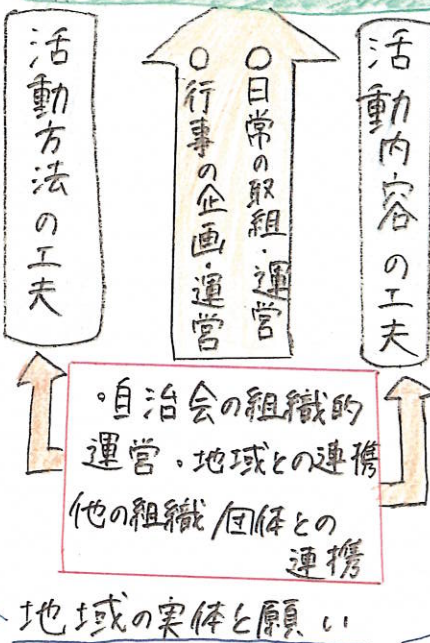 活動内容の工夫
○日常の取組・運営
○行事の企画・運営
活動方法の工夫
・自治会の組織的
運営・地域との連携
他の組織/団体との
連携
地域の実体と願い